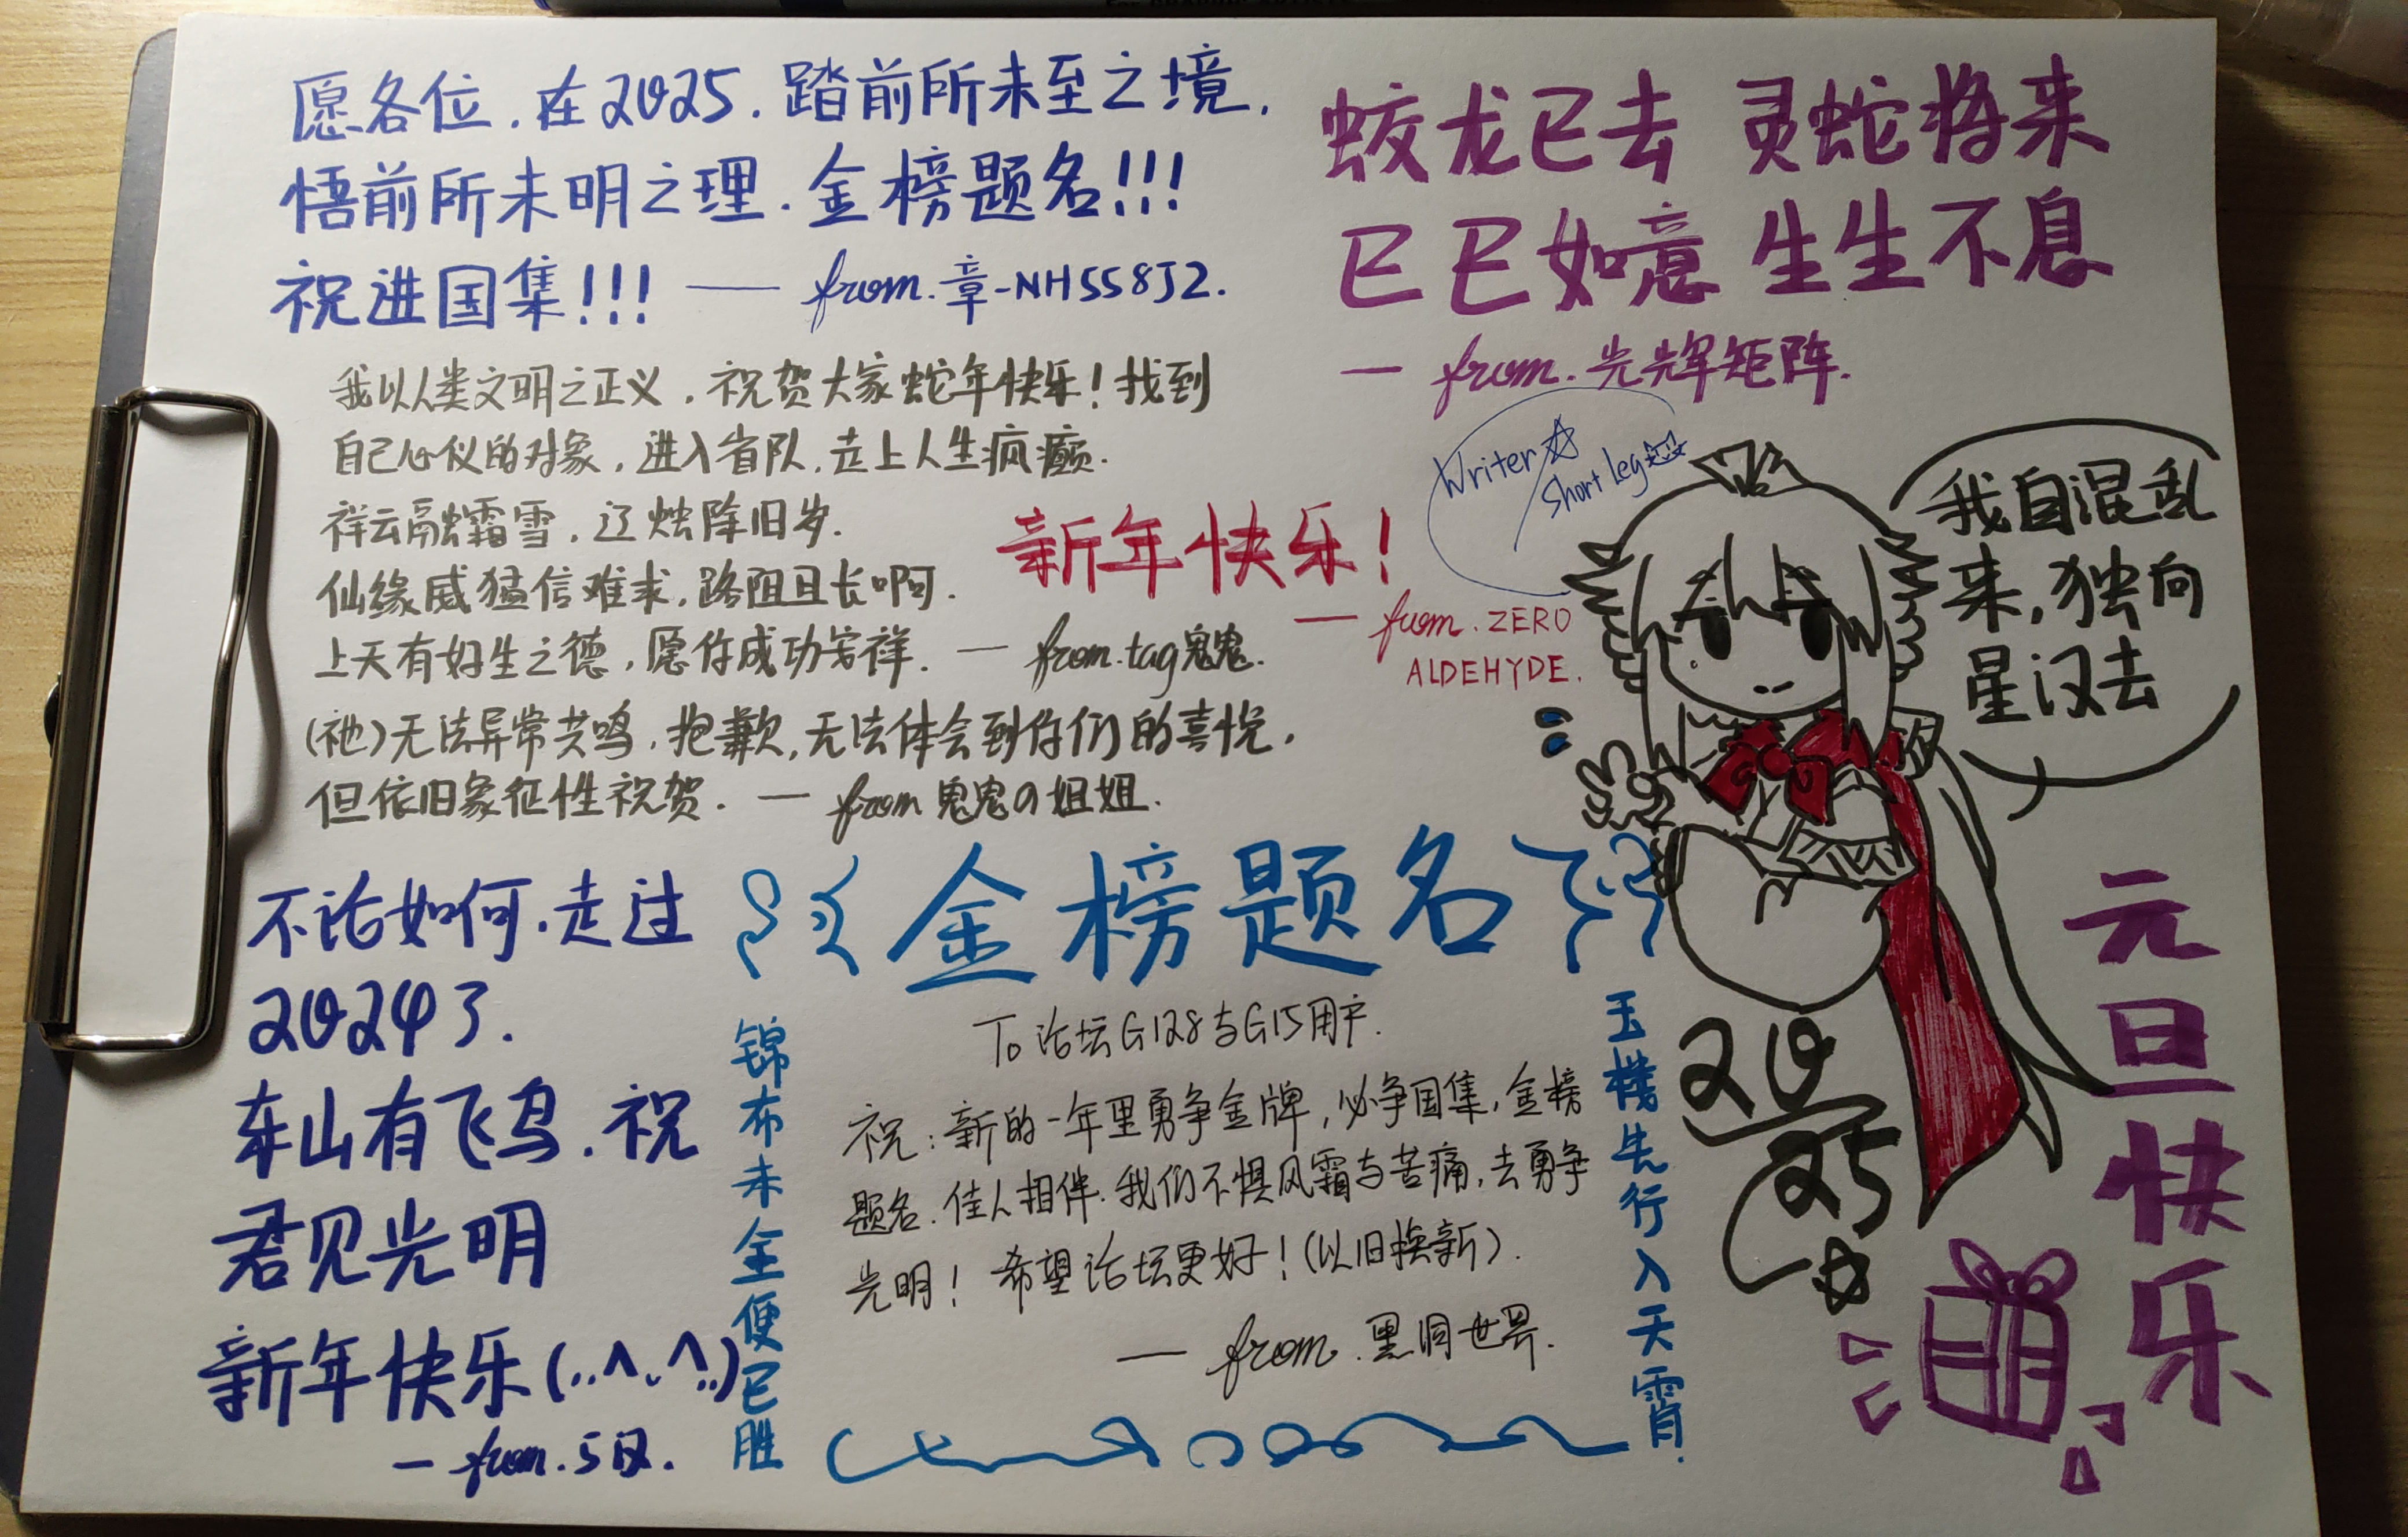 愿各位.在2025.踏前所未至之境.
悟前所未明之理.金榜题名!!!
祝进国集!!! —— from.章-NH558J2.
蛟龙已去 灵蛇将来
巳巳如意 生生不息
— from.光辉矩阵.
我以人类文明之正义，祝贺大家蛇年快乐！找到
自己心仪的对象，进入省队，走上人生疯癫.
祥云融霜雪，辽烛降旧岁.
仙缘威猛信难求，路阻且长啊.
上天有好生之德，愿你成功安祥. — from.tag鬼鬼.
(祂)无法异常共鸣，抱歉，无法体会到你们的喜悦，
但依旧象征性祝贺. — from 鬼鬼の姐姐.
新年快乐！
— from. ZERO
ALDEHYDE.
Writer☆
Short Leg
我自混乱
来，独向
星汉去
不论如何.走过
2024了.
东山有飞鸟.祝
君见光明
新年快乐(..^.^..)
— from.5汉.
金榜题名
锦布未全便已胜
To论坛G128与G15用户.
祝：新的一年里勇争金牌，必争国集，金榜
题名.佳人相伴.我们不惧风霜与苦痛，去勇争
光明！希望论坛更好！(以旧换新).
— from.黑洞世界.
玉楼先行入天霄.
2025
元旦快乐